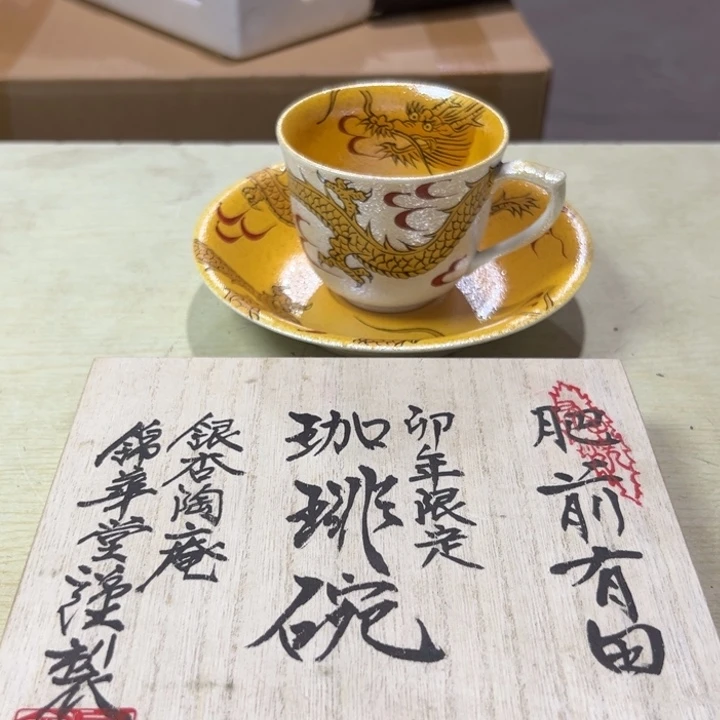 肥前有田
卯年限定
珈琲碗
銀杏陶庵
錦華堂謹製